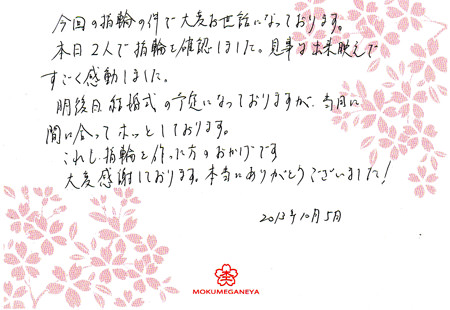 今回の指輪の件で大変お世話になっております。
本日2人で指輪を確認しました。見事な出来映えで
すごく感動しました。
明後日結婚式の予定になっておりますが、当日に
間に合ってホッとしております。
これも指輪を作った方のおかげです
大変感謝しております。本当にありがとうございました!
2013年10月5日
MOKUMEGANEYA